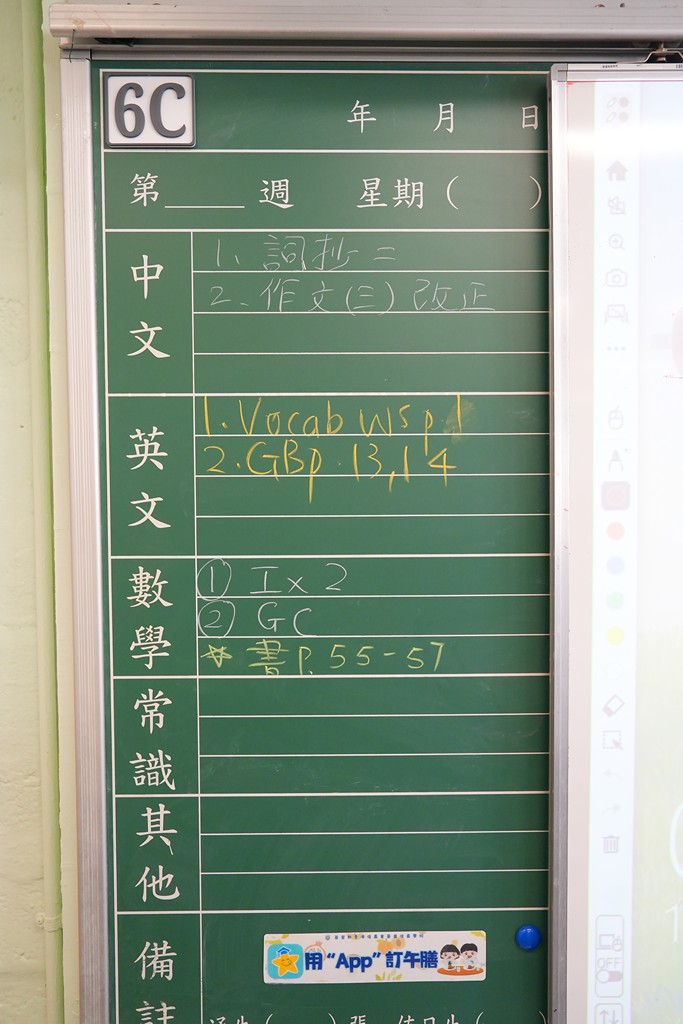 6C
年 月 日
第____週 星期( )
中文
1、詞抄二
2、作文(三)改正
英文
1.Vocab WS p1
2.GBp.13,14
數學
① I×2
② GC
☆書P.55-57
常識
其他
備註
用“App”訂午膳
OFF